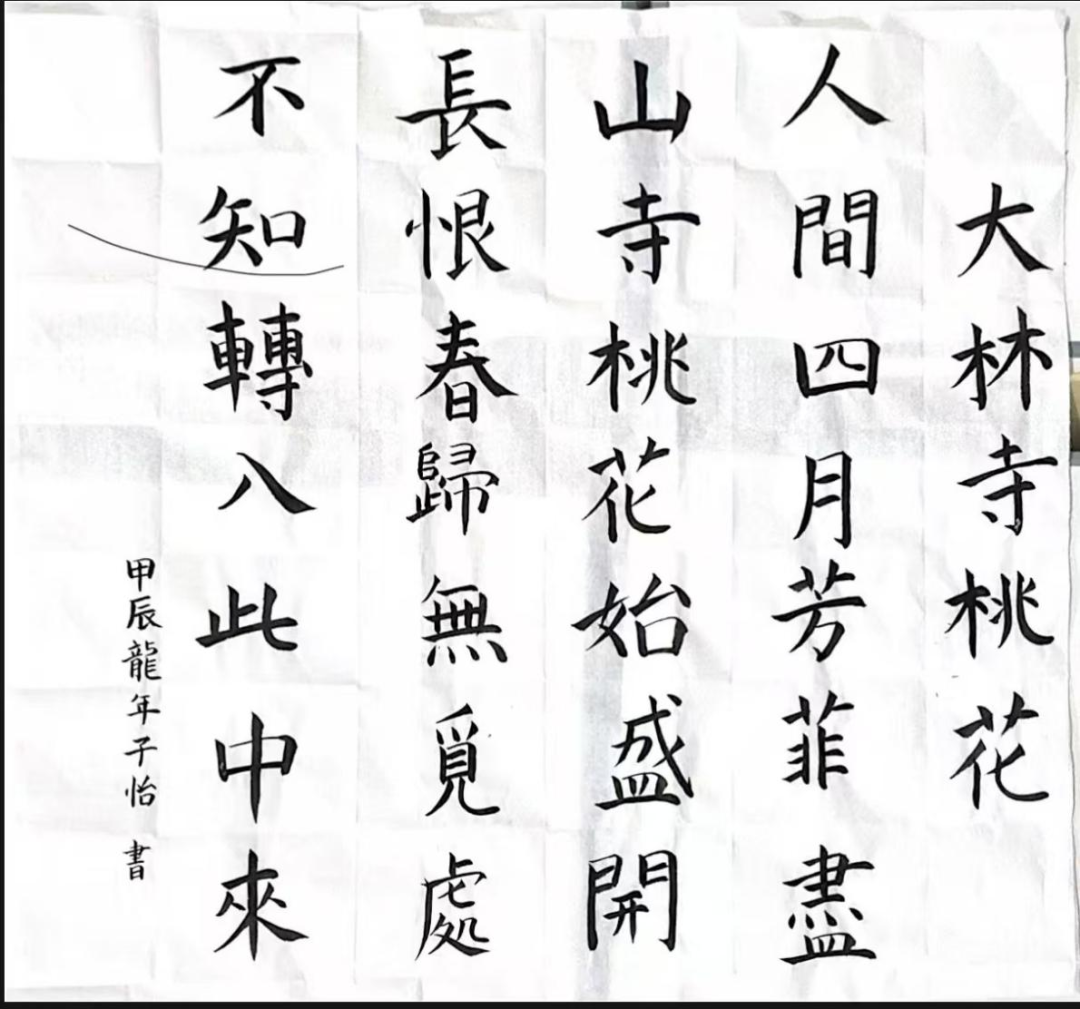 大林寺桃花
人間四月芳菲盡
山寺桃花始盛開
長恨春歸無覓處
不知轉八此中來
甲辰龍年子怡 書